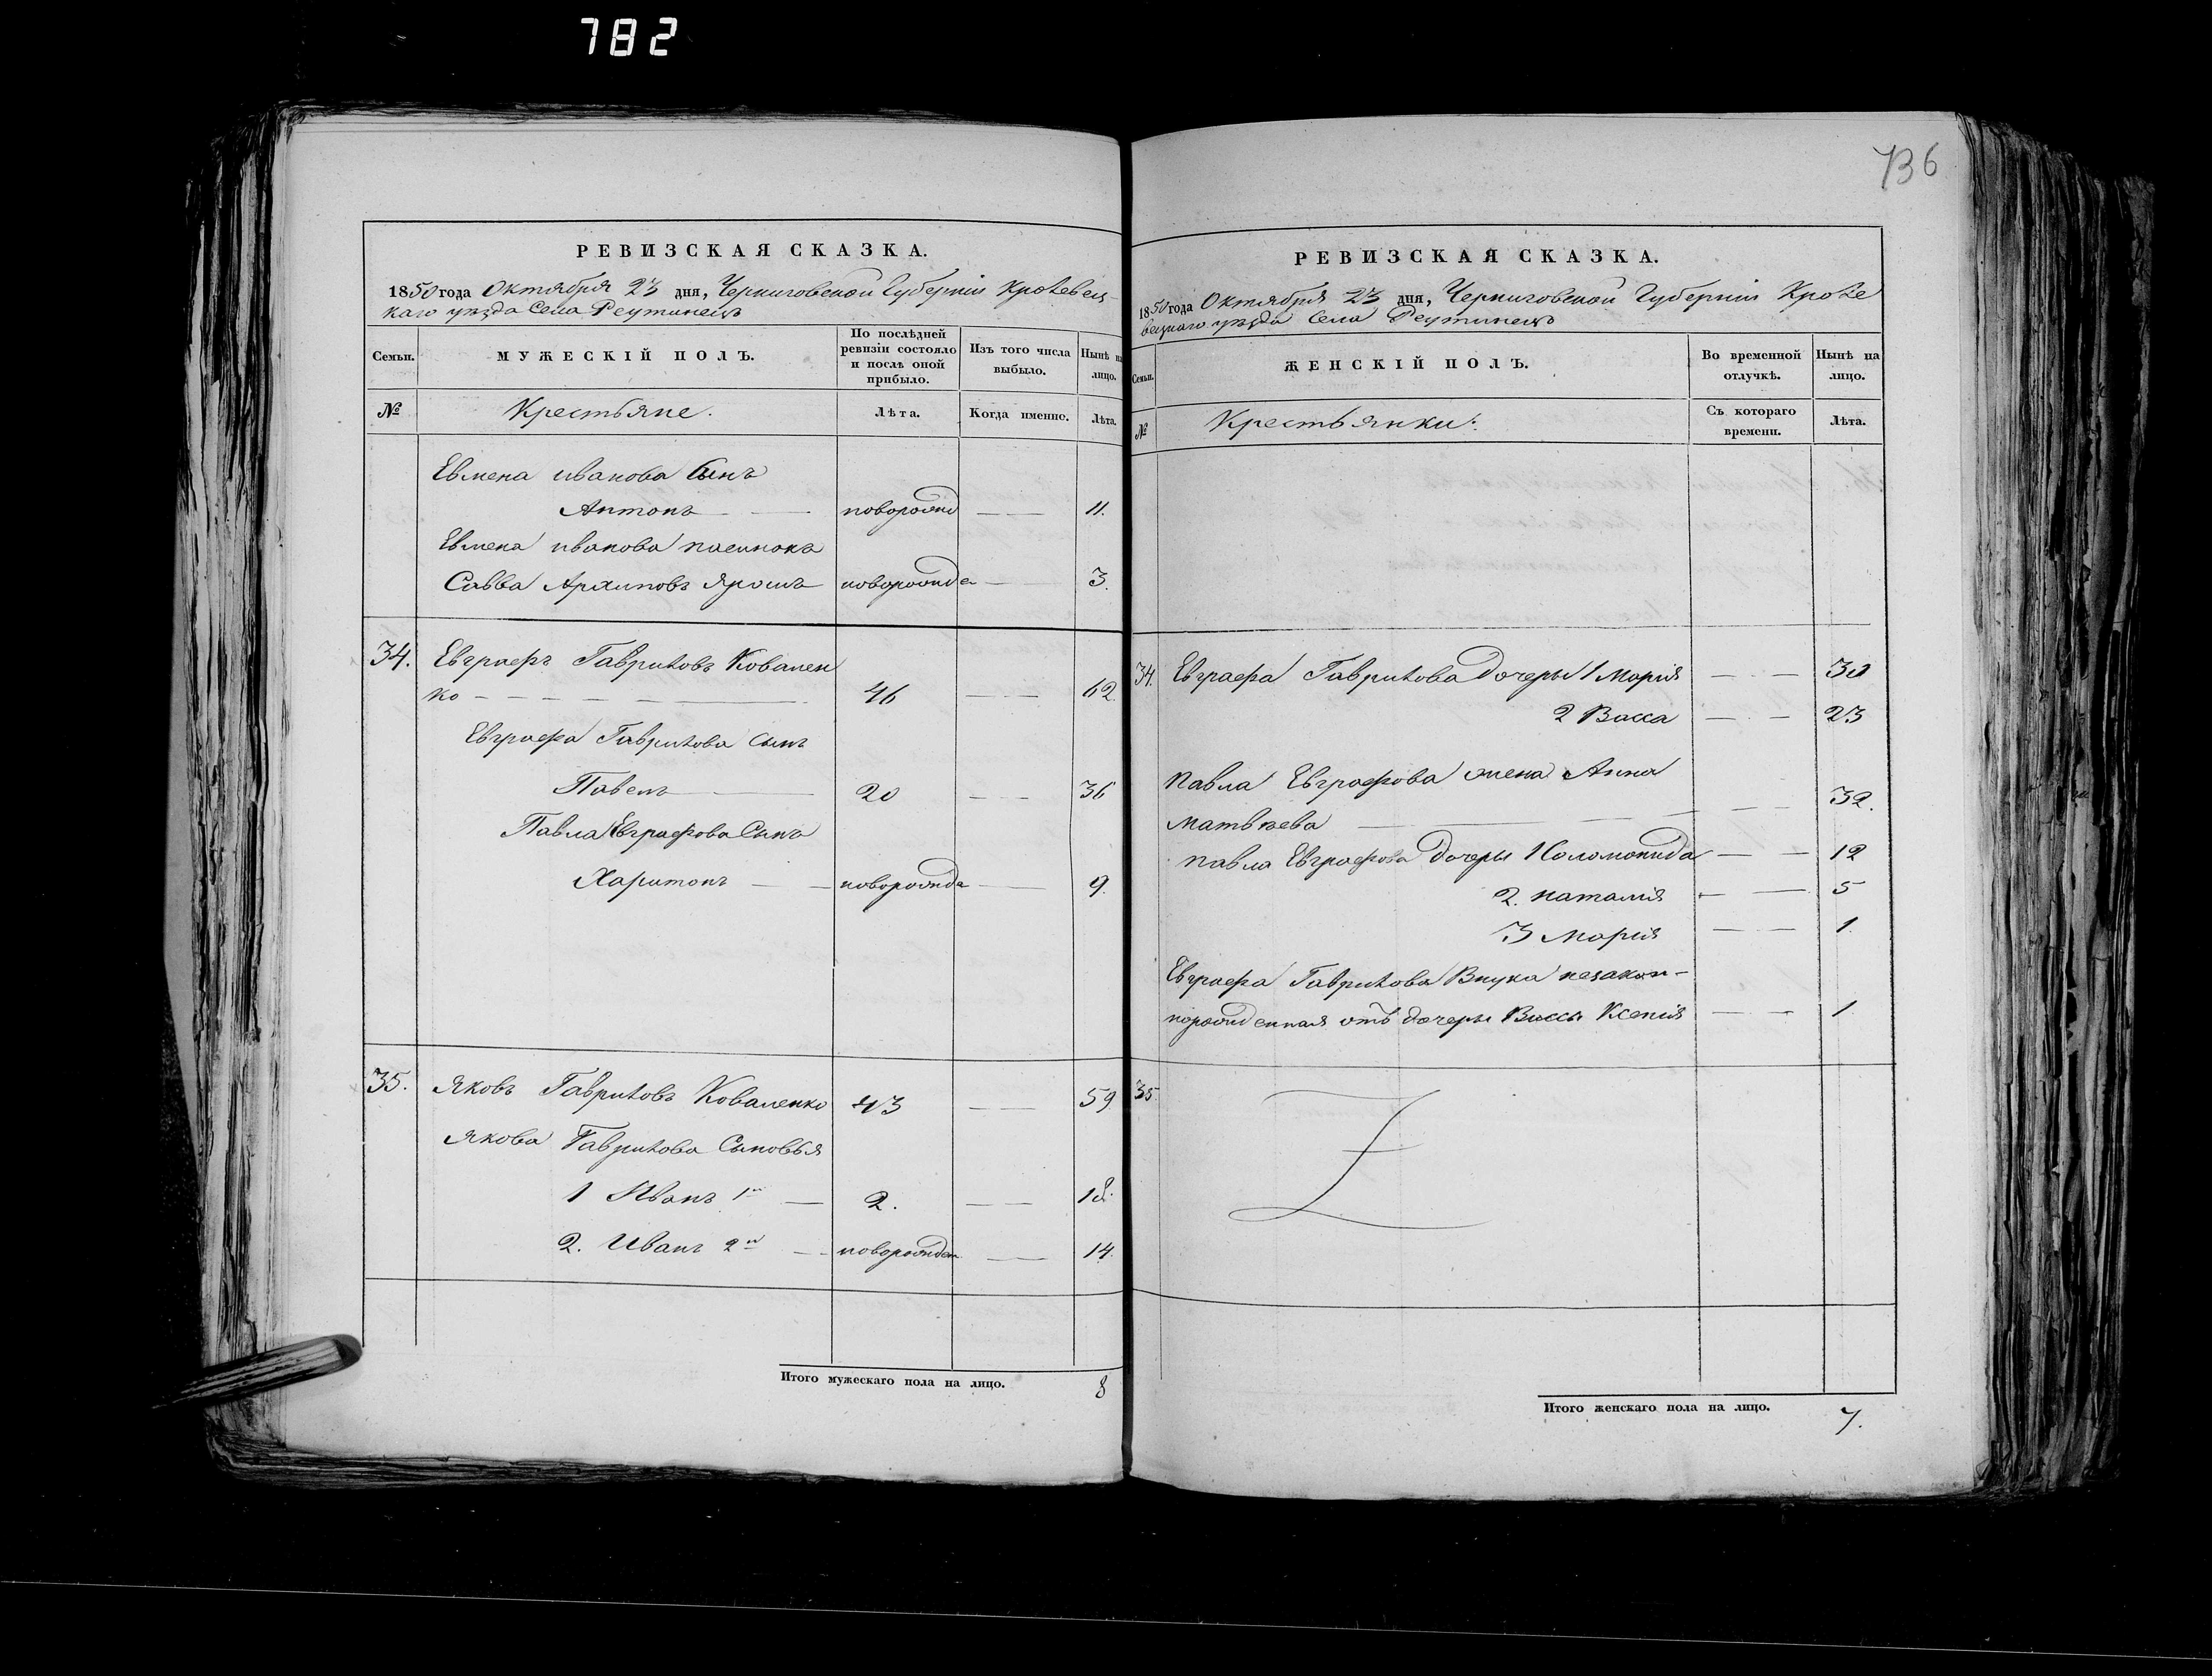 782
736
РЕВИЗСКАЯ СКАЗКА.
1850 года Октября 23 дня, Черниговской Губерніи Кролевец-
каго уѣзда Села Реутинецъ
Семьи.
МУЖЕСКІЙ ПОЛЪ.
По послѣдней ревизіи состояло и послѣ оной прибыло.
Изъ того числа выбыло.
Нынѣ на лицо.
№
Крестьяне.
Лѣта.
Когда именно.
Лѣта.
Евмена иванова Сынъ
Антонъ новорожд 11.
Евмена иванова пасынокъ
Савва Архиповъ Ярошъ новорожде 3.
34. Евграфъ Гавриловъ Ковален
ко 46 62
Евграфа Гаврилова сынъ
Павелъ 20 36
Павла Евграфова Сынъ
Харитонъ новорожде 9.
35. Яковъ Гавриловъ Коваленко 43 59
Якова Гаврилова Сыновья
1 Иванъ 1й 2. 18.
2. Иванъ 2й новорожден 14.
Итого мужескаго пола на лицо. 8
РЕВИЗСКАЯ СКАЗКА.
1850 года Октября 23 дня, Черниговской Губерніи Кроле
вецкаго уѣзда Села Реутинецъ
Семьи.
ЖЕНСКІЙ ПОЛЪ.
Во временной отлучкѣ.
Нынѣ на лицо.
№
Крестьянки.
Съ котораго времени.
Лѣта.
34. Евграфа Гаврилова дочеры 1 Марія 30
2 Васса 23
Павла Евграфова жена Анна
Матвѣева 32.
Павла Евграфова дочеры 1 Соломонида 12
2. Наталія 5
3 Марія 1
Евграфа Гаврилова Внука незакон-
норожденная отъ дочеры Вассы Ксенія 1
35
Итого женскаго пола на лицо. 7.